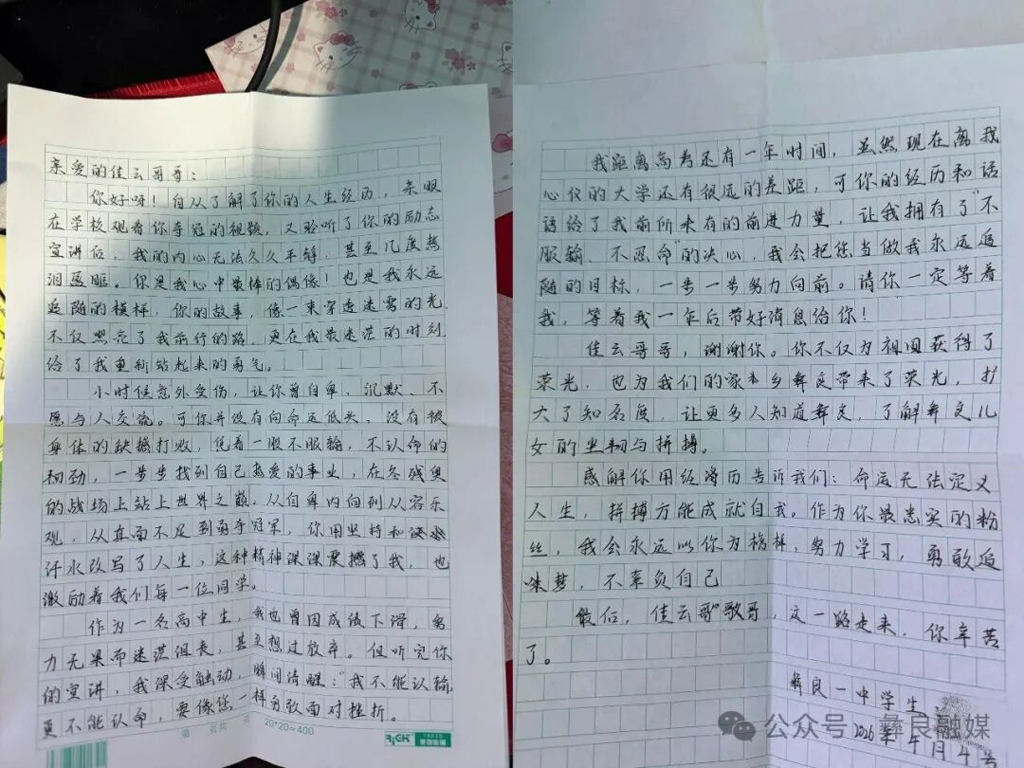 亲爱的佳云哥哥：
你好呀！自从了解了你的人生经历，亲眼
在学校观看你夺冠的视频，又聆听了你的励志
宣讲后，我的内心无法久久平静，甚至几度热
泪盈眶。你是我心中最棒的偶像！也是我永远
追随的模样，你的故事，像一束穿透迷雾的光，
不仅照亮了我前行的路，更在我最迷茫的时刻
给了我重新站起来的勇气。
小时候意外受伤，让你曾自卑，沉默、不
愿与人交流。可你并没有向命运低头、没有被
身体的缺憾打败，凭着一股不服输，不认命的
韧劲，一步步找到自己热爱的事业，在冬残奥
的战场上站上世界之巅，从自卑内向到从容乐
观，从直面不足到勇夺冠军，你用坚持和
汗水改写了人生，这种精神深深震撼了我，也
激励着我们每一位同学。
作为一名高中生，我也曾因成绩下滑，努
力无果而迷茫沮丧，甚至想过放弃。但听完你
的宣讲，我深受触动，瞬间清醒："我不能认输，
更不能认命，要像您一样勇敢面对挫折。
第 页共 页 20*20=400
我距离高考还有一年时间，虽然现在离我
心仪的大学还有很远的差距，可你的经历和话
语给了我前所未有的前进力量，让我拥有了"不
服输、不忍命"的决心，我会把您当做我永远追
随的目标，一步一步努力向前。请你一定等着
我，等着我一年后带好消息给你！
佳云哥哥，谢谢你。你不仅为祖国获得了
荣光，也为我们的家乡彝良带来了荣光，扩
大了知名度，让更多人知道彝良，了解彝良儿
女的坚韧与拼搏。
感解你用经历告诉我们：命运无法定义
人生，拼搏方能成就自我。作为你最忠实的粉
丝，我会永远以你为榜样，努力学习，勇敢追
梦，不辜负自己
最后，佳云哥"歌哥，这一路走来，你辛苦
了。
彝良一中学生
2026年4月4号
公众号：彝良融媒